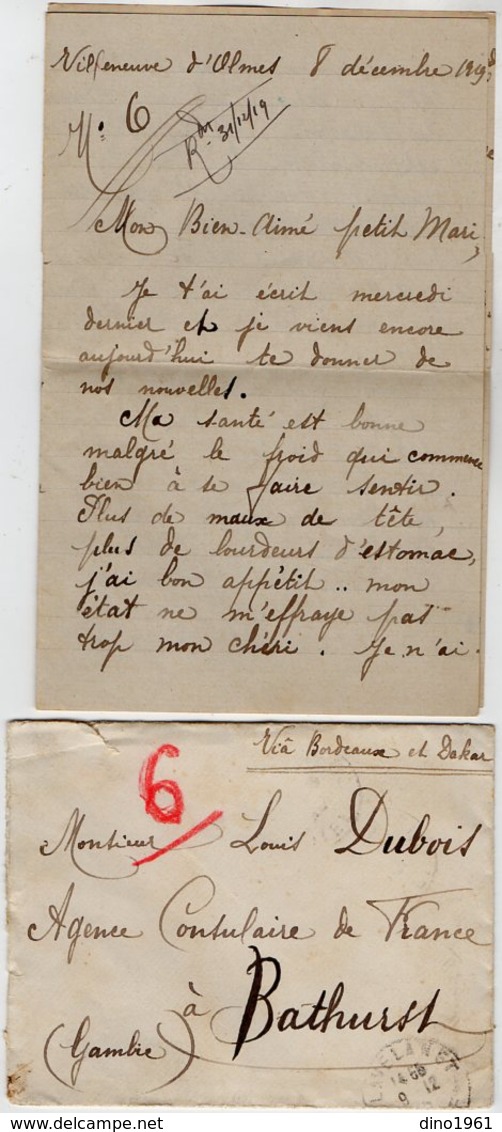 Villeneuve d'Olmes 8 décembre 1919
N° 6
Rdu 31/12/19
Mon Bien-Aimé petit Mari,
Je t'ai écrit mercredi
dernier et je viens encore
aujourd'hui te donner de
nos nouvelles.
Ma santé est bonne
malgré le froid qui commence
bien à se faire sentir.
Plus de maux de tête,
plus de lourdeurs d'estomac,
j'ai bon appétit.. mon
état ne m'effraye pas
trop mon chéri. Je n'ai
Viâ Bordeaux et Dakar
6
Monsieur Louis Dubois
Agence Consulaire de France
à
Bathurst
(Gambie)
LAVELANET
9 12
dino1961